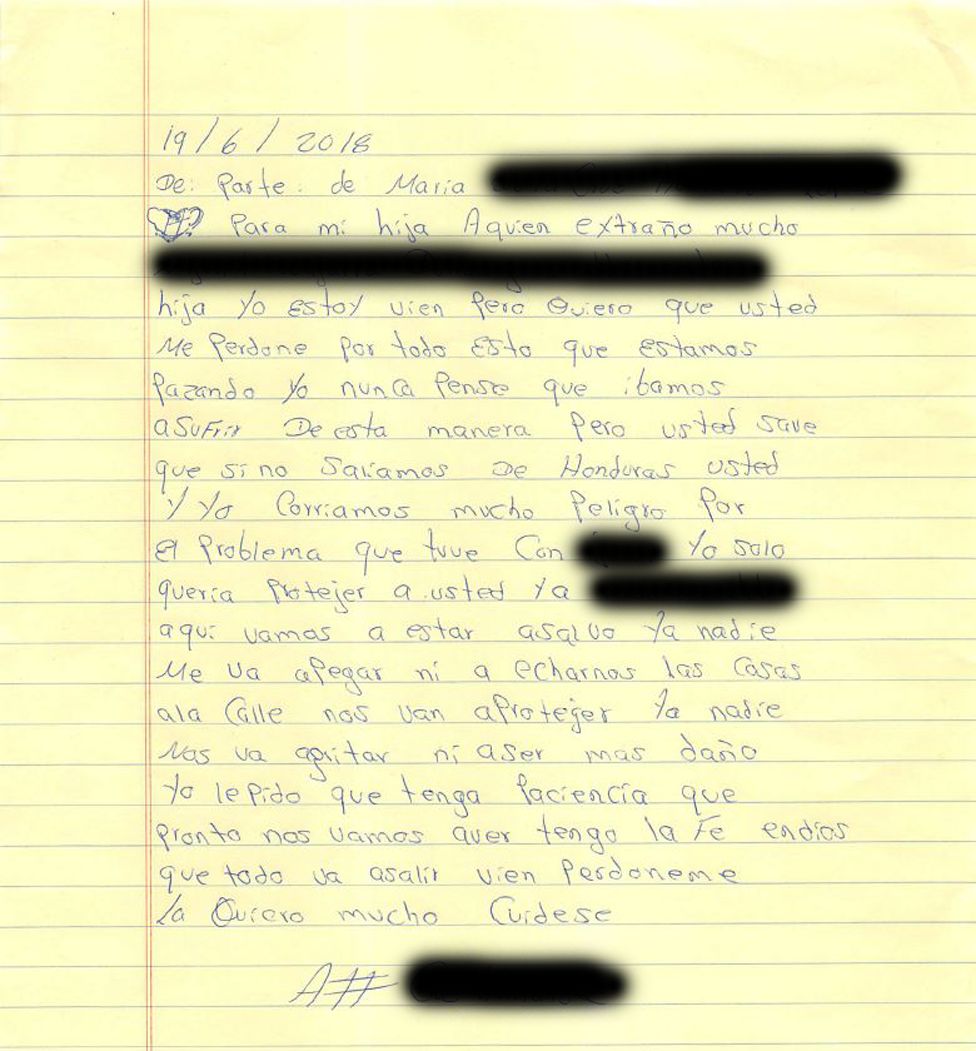 19/6/2018
De: Parte. de Maria
Para mi hija Aquien extraño mucho
hija yo estoy vien pero Quiero que usted
Me Perdone por todo esto que estamos
Pazando yo nunca Pense que ibamos
asufrir De esta manera Pero usted save
que si no saliamos De Honduras usted
y yo Corriamos mucho Peligro Por
el Problema que tuve Con yo solo
queria Protejer a.usted ya
aqui vamos a estar asalvo ya nadie
Me va apegar ni a echarnos las cosas
ala Calle nos van aprotejer ya nadie
Nos va agritar ni aser mas daño
yo lepido que tenga Paciencia que
pronto nos vamos aver tengo la Fe endios
que todo va asalir vien Perdoneme
la Quiero mucho Cuidese